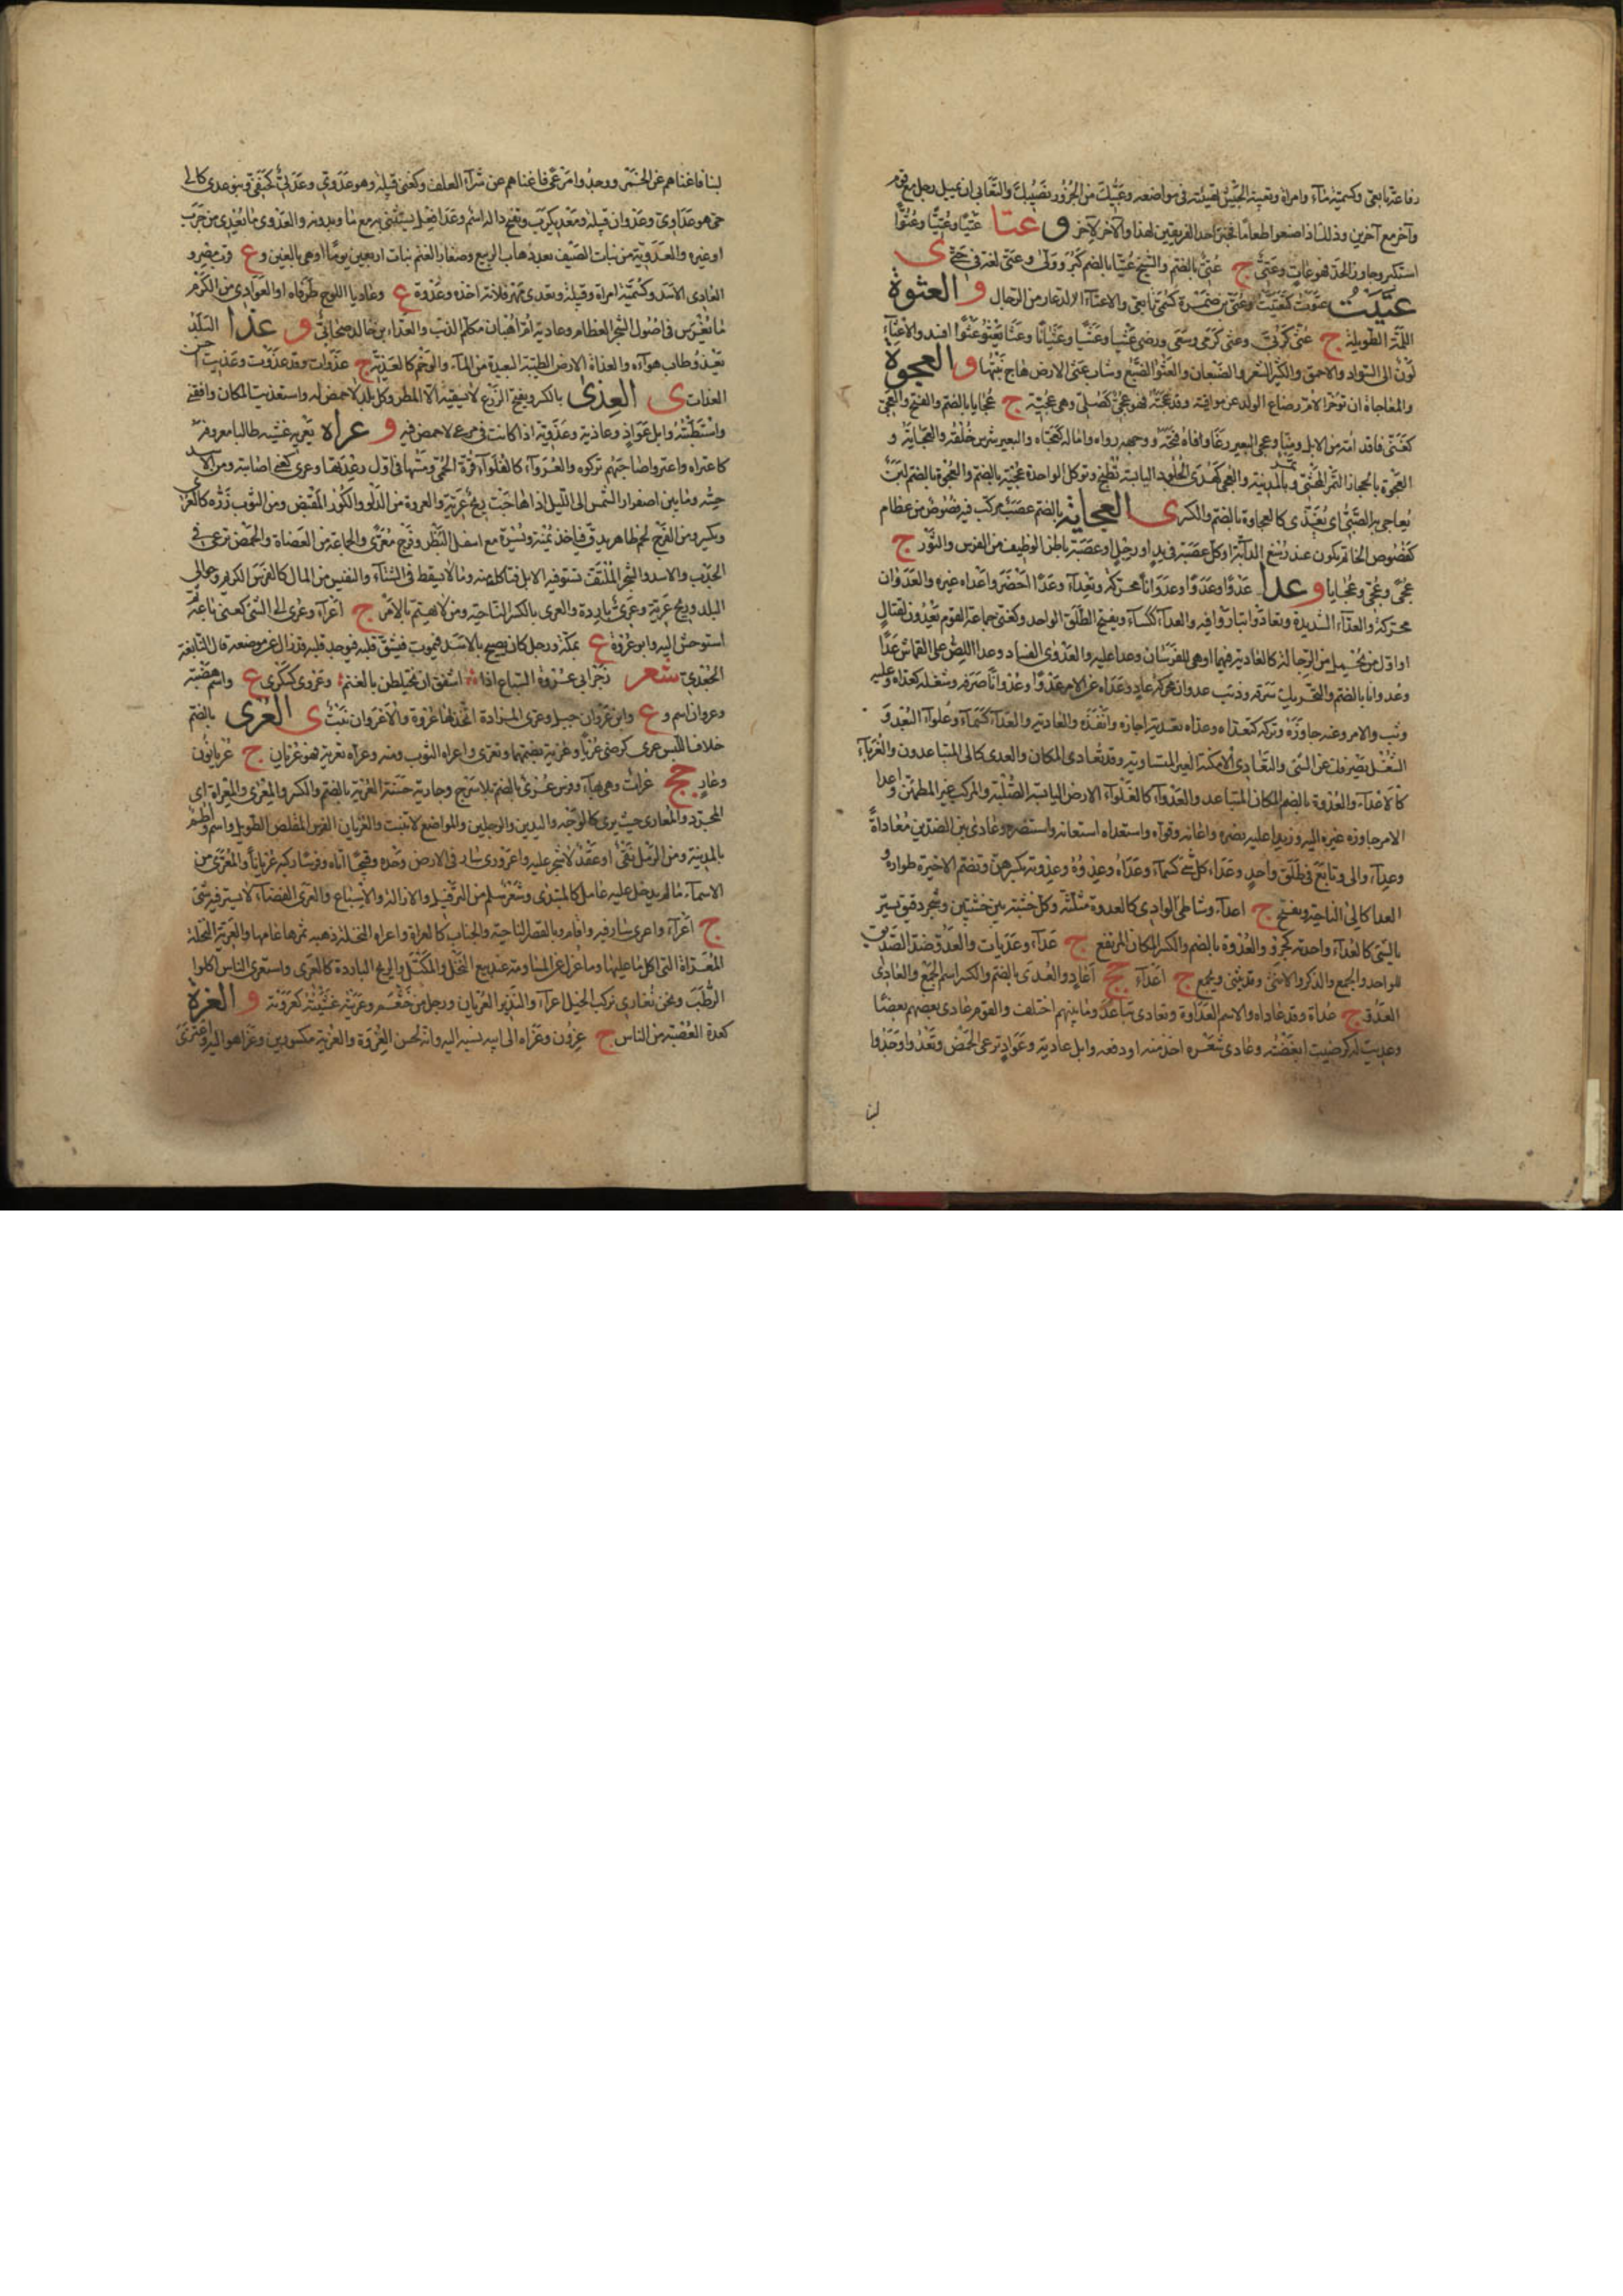 رفاعة تابعى وكسمية ماء وامراة وتعبية الجيش تهيئته فى مواضعه وعبيك من الجزور نصيبك والتعابى ان يميل رجل مع قوم
وآخر مع آخرين وذلك اذا صنعوا طعاما فخبز احد الفريقين لهذا والآخر لآخر و عتا عتيا وعتيا وعتوا
استكبر وجاوز الحد فهو عات وعتى ج عتى بالضم والشيخ عتيا بالضم كبر وولى وعتى لغة فى حتى ى
عتيت عتوت كعتيت وعتى بن ضمرة كسمى تابعى والاعتاء الدعار من الرجال و العثوة
اللمة الطويلة ج عثى كربى وعثى كرمى وسعى ورضى عثيا وعثيا وعثيانا وعثا يعثو عثوا افسد والاعثاء
لون الى السواد والاحمق والكثير الشعر والضبعان والعثوا الضبع وشاب عثى الارض هاج نبتها و العجوة
والمعاجاة ان تؤخر الام رضاع الولد عن مواقيته وقد عجته فهو عجى كصلى وهى عجية ج عجايا بالضم والفتح والعجى
كغنى فاقد امه من الابل ومنا وعجى البعير رغا وفاه فتحه ووجهه زواه واماله كعجاه والبعير شرس خلقه والعجاية و
العجوة بالحجاز التمر المحشى وتمر بالمدينة والعجى كهدى الجلود اليابسة تطبخ وتؤكل الواحدة عجية بالضم والعجوة بالضم لبن
يعاجى به الصبى اى يغذى كالعجاوة بالضم والكسر ى العجاية بالضم عصب مركب فيه فصوص من عظام
كفصوص الخاتم يكون عند رسغ الدابة او كل عصبة فى يد او رجل او عصبة باطن الوظيف من الفرس والثور ج
عجى وعجى وعجايا و عدا عدوا وعدوا وعدوانا محركة وتعداء وعدا احضر واعداه غيره والعدوان
محركة والعداء الشديدة وتعادوا تباروا فيه والعداء ككساء ويفتح الطلق الواحد وكغنى جماعة القوم يعدون لقتال
او اول من يحمل من الرجالة كالعادية فيهما او هى للفرسان وعدا عليه والعدوى الفساد وعدا اللص على القماش عداء
وعدوانا بالضم والتحريك سرقه وذئب عدوان محركة عاد وعداه عن الامر عدوا وعدوانا صرفه وشغله كعداه وعليه
وثب والامر وعنه جاوزه وتركه كتعداه وعداه تعدية اجازه وانفذه والعادية والعداء كسماء وغلواء البعد و
الشغل يصرفك عن الشئ والتعادى الامكنة الغير المتساوية وقد تعادى المكان والعدى كالى المتباعدون والغرباء
كالاعداء والعدوة بالضم المكان المتباعد والعدواء كالغلواء الارض اليابسة الصلبة والمركب غير المطمئن واعدا
الامر جاوزه غيره اليه وزيدا عليه نصره واعانه وقواه واستعداه استعانه واستنصره وعادى بين الصيدين معاداة
وعداء والى وتابع فى طلق واحد وعداء كل شئ كسماء وعداه وعدوه وعدوته بكسرهن وتضم الاخيرة طواره و
العدا كالى الناحية ويفتح ج اعداء وشاطى الوادى كالعدوة مثلثة وكل خشبة بين خشبتين وحجر رقيق يستر
به الشئ كالعداء واحدته كجرو والعدوة بالضم والكسر المكان المرتفع ج عداء وعديات والعدو ضد الصديق
للواحد والجمع والذكر والانثى وقد يثنى ويجمع ج اعداء جج اعاد والعدى بالضم والكسر اسم الجمع والعادى
العدو ج عداة وقد عاداه والاسم العداوة وتعادى تباعد وما بينهم اختلف والقوم عادى بعضهم بعضا
وعديت له كرضيت ابغضته وعادى شعره اخذ منه او دفعه وابل عادية وعواد ترعى الحمض وتعدوا وجدوا
لبنا
لبنا فاغناهم عن الخمر ووجدوا مرعى فاغناهم عن شراء العلف وكغنى قبيلة وهو عدوى وعدى كحنفى وبنو عدى كالى
حى هو عداوى وعدوان قبيلة ومعديكرب وتفتح داله اسم وعدا فعل يستثنى به مع ما وبدونه والعدوى ما يعدى من جرب
او غيره والعدوية من نبات الصيف بعد ذهاب الربيع وصغار الغنم بنات اربعين يوما او هى بالغين و ع قرب مصر و
العادى الاسد وكسمية امراة وقبيلة وتعدى مهر فلانة اخذه وعدوة ع وعاديا اللوح طرفاه او العوادى من الكرم
ما يغرس فى اصول الشجر العظام وعادية ام اهبان مكلم الذئب والعداء بن خالد صحابى و عذا البلد
يعذو طاب هواءه والعذاة الارض الطيبة البعيدة من الماء والوخم كالعذية ج عذوات وقد عذوت وعذيت احسن
العذاة ى العذى بالكسر ويفتح الزرع لا يسقيه الا المطر وكل بلد لا حمض له واستعذيت المكان وافقنى
واستطبته وابل عواذ وعاذية وعذوية اذا كانت فى مرعى لا حمض فيه و عراه يعروه غشيه طالبا معروفه
كاعتراه واعروا صاحبهم تركوه والعرواء كالغلواء قرة الحمى ومسها فى اول رعدتها وعرى كعنى اصابته ومن الاسد
حسه وما بين اصفرار الشمس الى الليل اذا هاجت ريح عرية والعروة من الدلو والكوز المقبض ومن الثوب زره كالعرى
ويكسر ومن الفرج لحم ظاهر يدق فياخذ يمنة ويسرة مع اسفل البظر وفرج معرى والجماعة من العضاه والحمض ترعى فى
الجدب والاسد والشجر الملتف تشتو فيه الابل فتاكل منه وما لا يسقط فى الشتاء والنفيس من المال كالفرس الكريم وحوالى
البلد وريح عرية وعرى باردة والعرى بالكسر الناحية ومن لا يهتم بالامر ج اعراء وعرى الى الشئ كعنى باعه ثم
استوحش اليه وابو عروة ع بمكة ورجل كان يصيح بالاسد فيموت فيشق قلبه فيوجد قلبه قد زال عن موضعه قال النابغة
الجعدى شعر زجر ابى عروة السباع اذا اشفق ان يختلطن بالغنم وعروى كسكرى ع واسم هضبة
وعروان اسم و ع وابن عروان جبل وعرى المزادة اتخذ لها عروة والاعروان نبت ى العرى بالضم
خلاف اللبس عرى كرضى عريا وعرية بضمهما وتعرى واعراه الثوب ومنه وعراه تعرية فهو عريان ج عريانون
وعار جج عراة وهى بهاء وفرس عرى بالضم بلا سرج وجارية حسنة العرية بالضم والكسر والمعرى والمعراة اى
المجرد والمعارى حيث يرى كالوجه واليدين والرجلين والمواضع لا تنبت والعريان الفرس المقلص الطويل واسم واطم
بالمدينة ومن الرمل نقى او عقد لا شجر عليه واعرورى سار فى الارض وحده وقبيحا اتاه وفرسا ركبه عريانا والمعرى من
الاسماء ما لم يدخل عليه عامل كالمبتدى وشعر سلم من الترفيل والاذالة والاسباغ والعرى الفضاء لا يستر فيه شئ
ج اعراء واعرى سار فيه واقام وبالقصر الناحية والجناب كالعراة واعراه النخلة وهبه ثمرها عامها والعرية النخلة
المعراة التى اكل ما عليها وما عزل عن المساومة عند بيع النخل والمكتل والريح الباردة كالعرى واستعرى الناس اكلوا
الرطب ونحن نعارى نركب الخيل اعراء والنذير العريان رجل من خثعم وعريته غشيته كعروته و العزة
كعدة العصبة من الناس ج عزون وعزاه الى ابيه نسبه اليه وانه لحسن العزوة والعزية مكسورتين وعزا هو اليه واعتزى